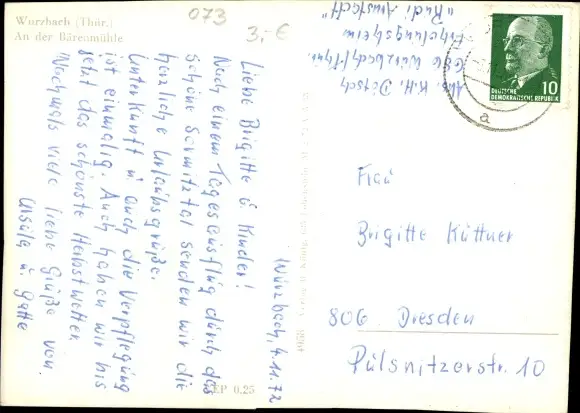 Wurzbach (Thür.)
An der Bärenmühle
073
3.-€
Abs. K.H. Dötsch
6860 Wurzbach/Thür.
Erholungsheim
"Rudi Arnstadt"
DEUTSCHE
DEMOKRATISCHE REPUBLIK
10
a
Wurzbach, 4.11.72
Liebe Brigitte u. Kinder!
Nach einem Tagesausflug durch das
schöne Sormitztal senden wir die
herzliche Urlaubsgrüße.
Unterkunft u. auch die Verpflegung
ist einmalig. Auch haben wir bis
jetzt das schönste Herbstwetter.
Nochmals viele liebe Grüße von
Ursula u. Gatte
EVP 0.25
Frau
Brigitte Küttner
806 Dresden
Pulsnitzerstr. 10